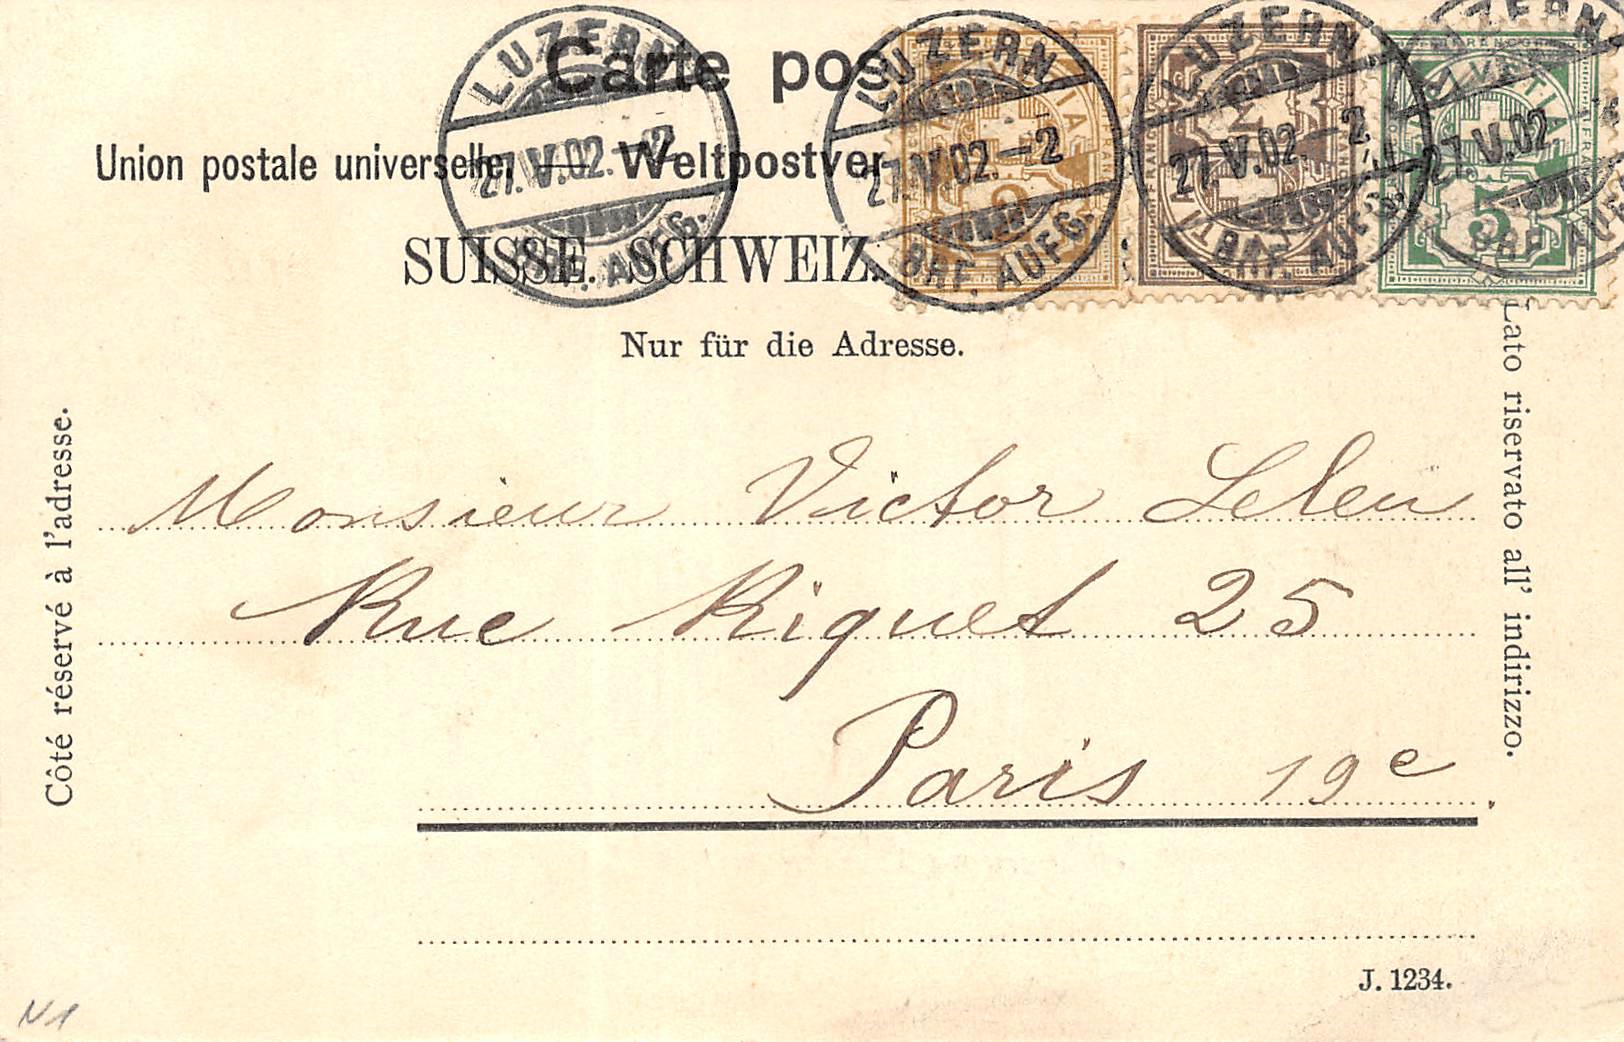 Carte pos
Union postale universelle. — Weltpostver
SUISSE. SCHWEIZ.
Nur für die Adresse.
LUZERN
27.V.02.–2
BRF. AUFG.
LUZERN
27.V.02.–2
BRF. AUFG.
LUZERN
27.V.02.–2
BRF. AUFG.
LUZERN
27.V.02.
BRF. AUF
HELVETIA
FRANCO
2
5
Côté réservé à l'adresse.
Lato riservato all' indirizzo.
Monsieur Victor Leleu
Rue Riquet 25
Paris 19e
J. 1234.
N1